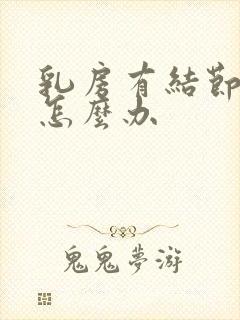 乳房有結節
怎麼办
鬼鬼夢游